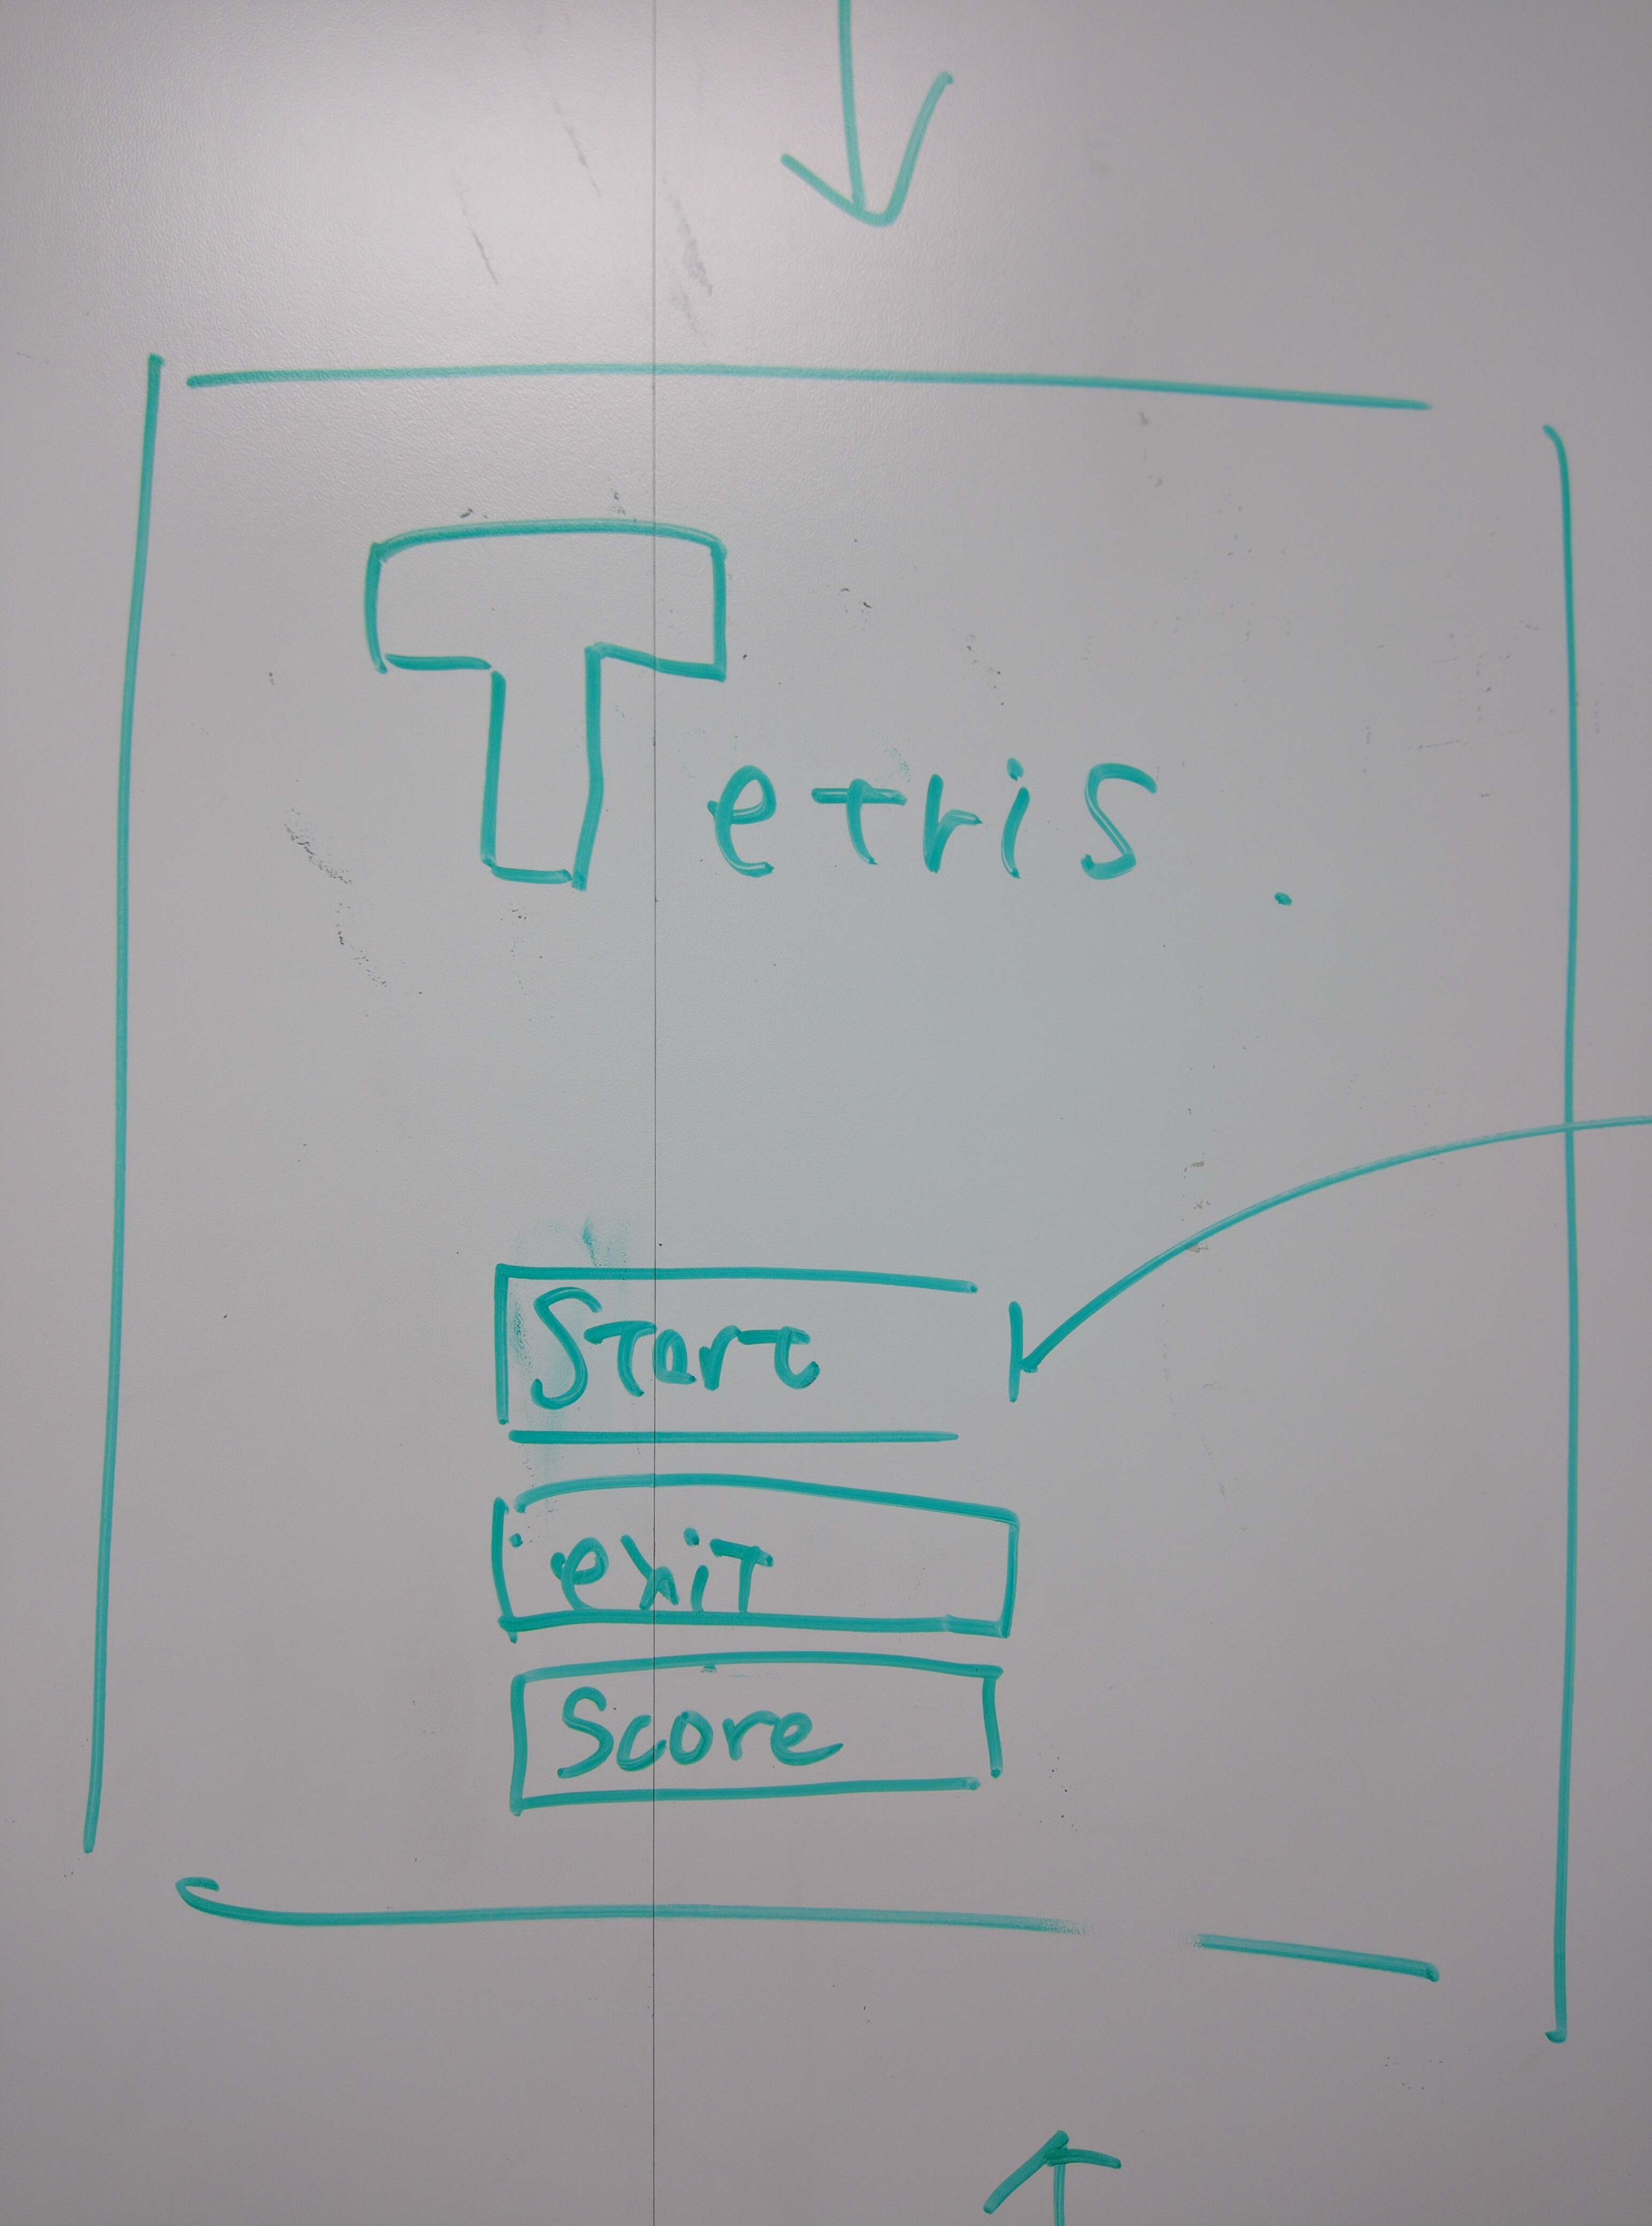 Tetris
Start
exit
Score